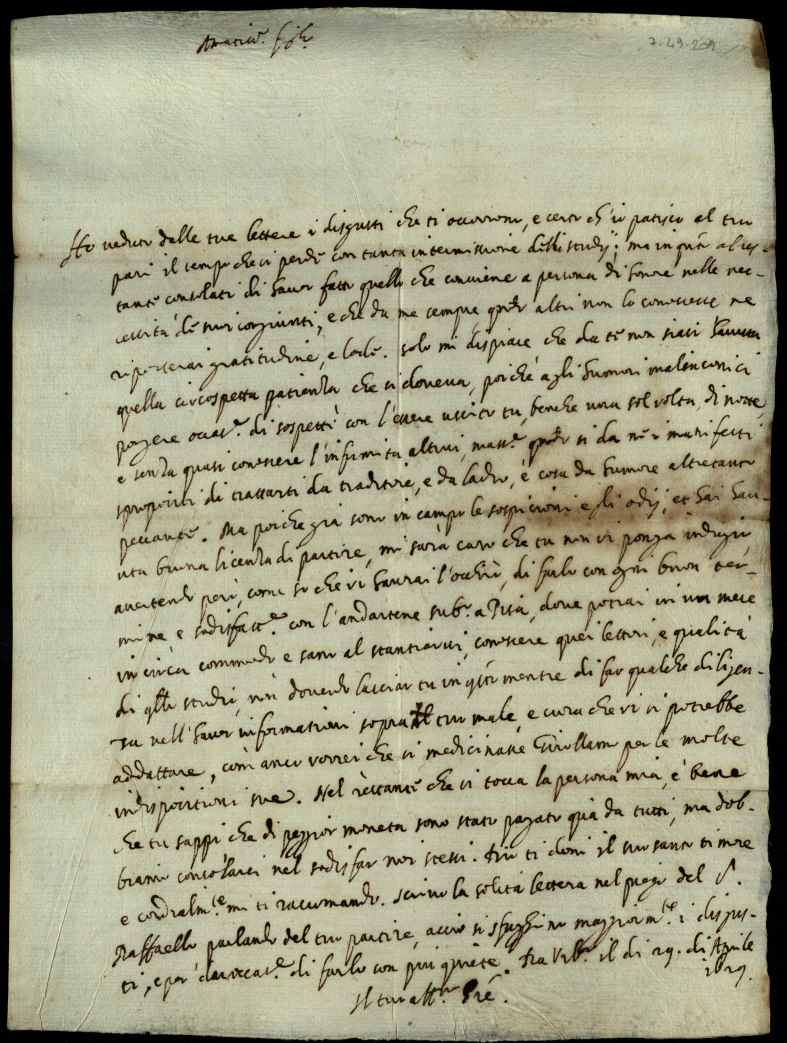 7-49-209
Ho veduto dalle tue lettere i disgusti che ti occorrono, e certo ch'io patisco al tuo
pari il tempo che si perde con tanta intermissione delli studij; ma in q.to al res-
tante consolati di haver fatto quello che conviene a persona di honore nelle nec-
cessità de suoi congiunti, e che da me sempre q.do altri non lo conoscesse ne
riporterai gratitudine, e lode. Solo mi dispiace che da te non siasi havuta
quella circospetta patienza che si doveva, poiché agli humori malinconici
porgere occas.e di sospetti con l'essere uscito tu, benche una sol volta, di notte,
e senza quasi conoscere l'infirmità altrui, mass.e q.do si da ne i manifesti
spropositi di trattarti da traditore, e da ladro, è cosa da humore altretanto
peccante. Ma poiche già sono in campo le sospicioni e gli odij, et hai hau-
uta buona licenza di partire, mi sarà caro che tu non vi ponga indugio
avertendo però, come so che vi haurai l'occhio, di farlo con ogni buon ter-
mine e sodisfatt.e con l'andartene sub.o a Pisa, dove potrai in un mese
in circa commodo e sano al stantiarvi, conoscere quei lettori, e qualità
di q.lli studij, non dovendo lasciar tu in q.sto mentre di far qualche diligen-
za nell'haver informationi sopra il tuo male, e cura che vi si potrebbe
addattare, com'anco vorrei che si medicinasse Girollamo per le molte
indispositioni sue. Nel restante che si tocca la persona mia, è bene
che tu sappi che di peggior moneta sono stato pagato quà da tutti, ma dob-
biamo consolarci nel sodisfar noi stessi. Iddio ti doni il suo santo timore
e cordialm.te mi ti racomando. Scrivo la solita lettera nel piego del S.
Raffaello parlando del tuo partire, acciò si sfugghino maggiorm.te i disgus-
ti, e per dar occas.e di farlo con più quiete. Da Urb.o il di 29. di Aprile
1629.
Il tuo aff.mo Pre.